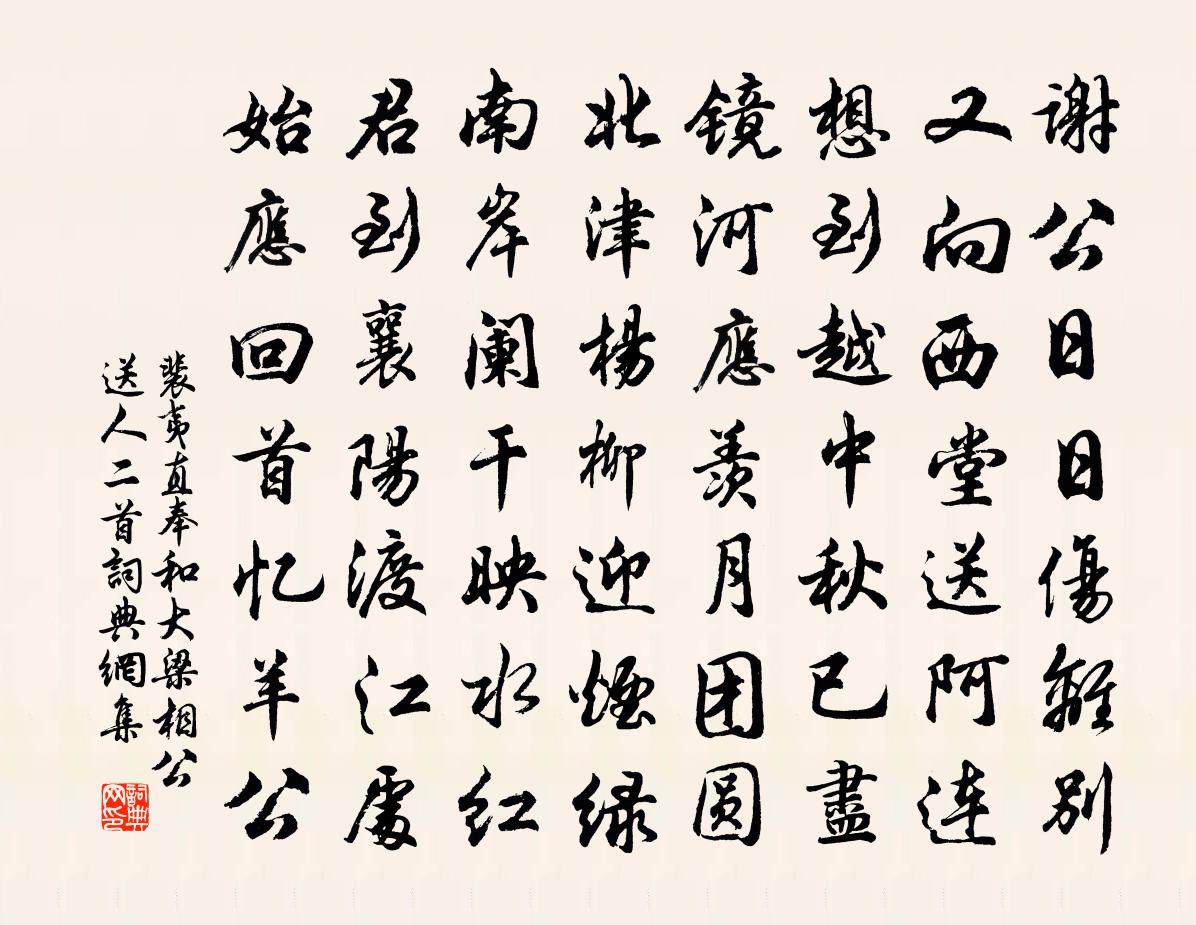 谢公日日傷離别
又向西堂送阿連
想到越中秋已盡
镜河應羨月团圆
北津楊柳迎煙绿
南岸阑干映水红
君到襄陽渡江處
始應回首忆羊公
裴夷直奉和大梁相公
送人二首詞典網集
詞典网印